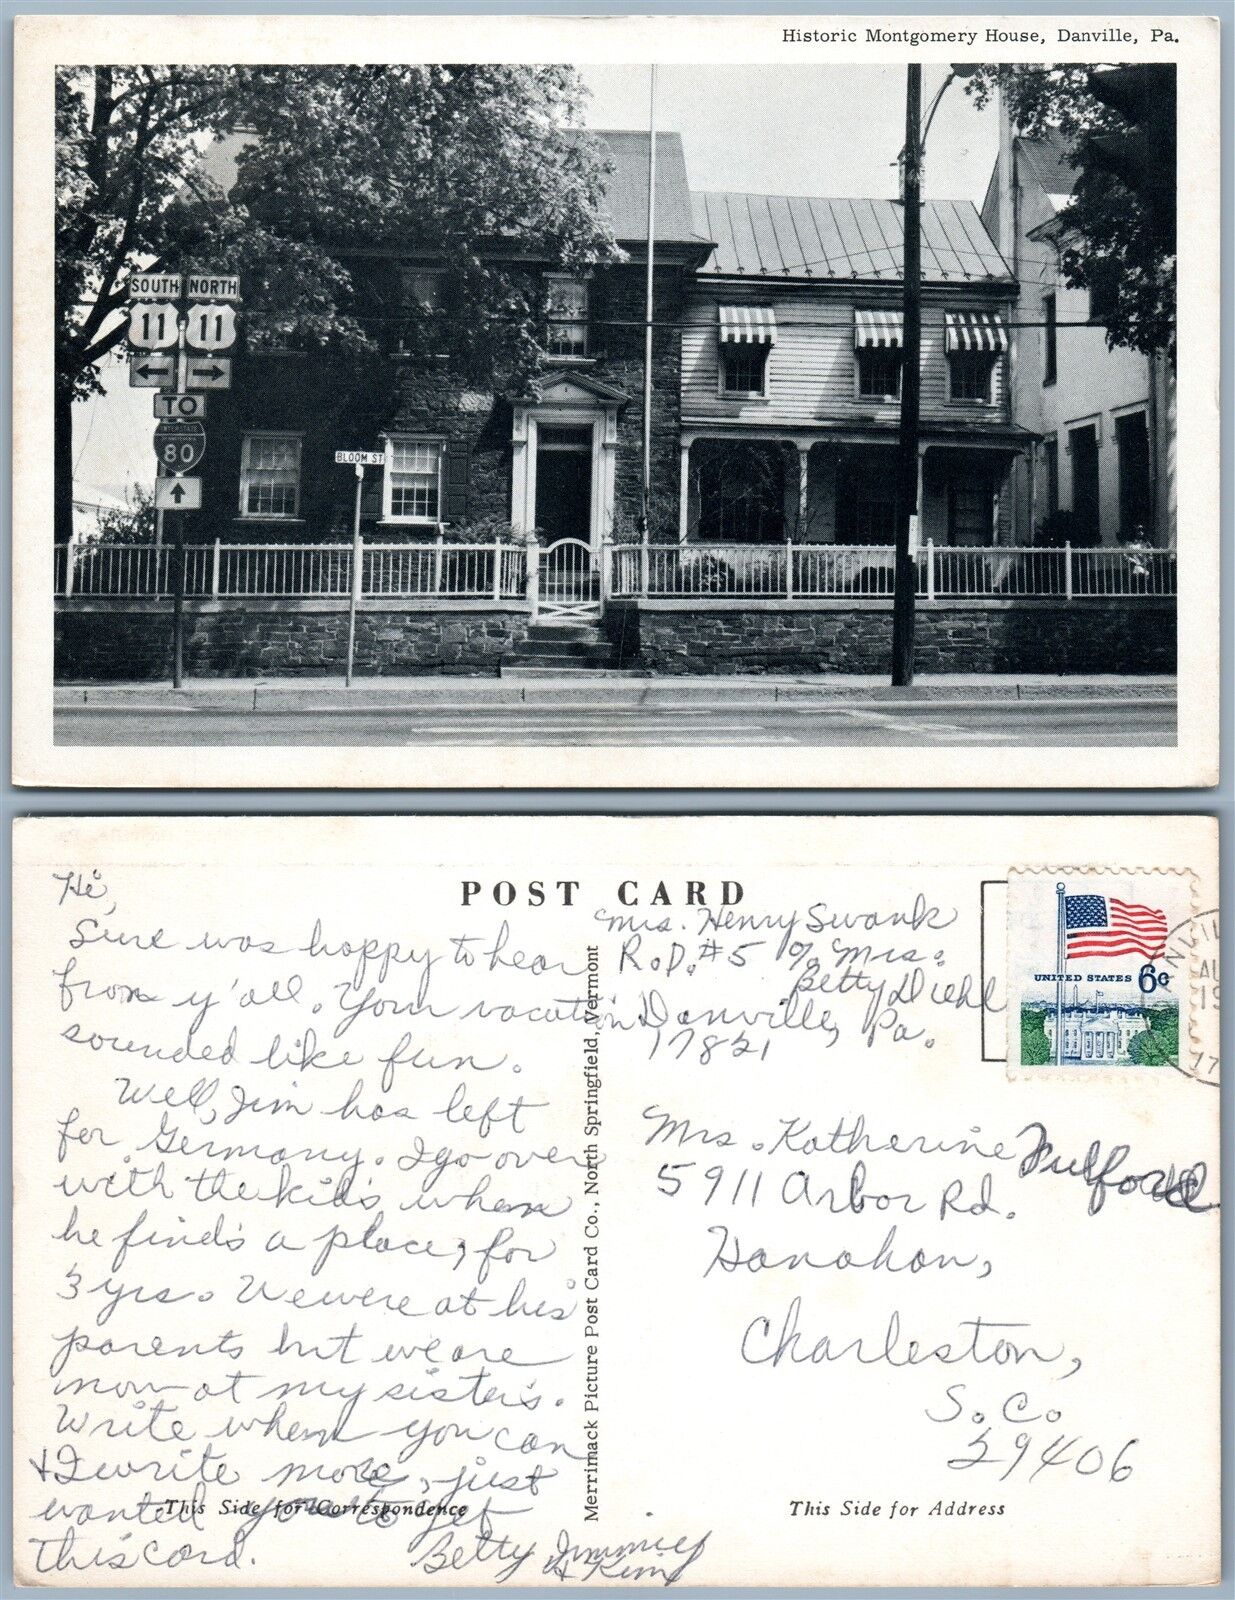 Historic Montgomery House, Danville, Pa.
SOUTH NORTH
11 11
TO
INTERSTATE
80
BLOOM ST
POST CARD
Hi,
Sure was happy to hear
from y'all. Your vacation
sounded like fun.
Well, Jim has left
for Germany. I go over
with the kids when
he finds a place, for
3 yrs. We were at his
parents but we are
now at my sisters.
Write when you can
+ I write more, just
wanted you to get
this card.
Betty Jimmie
& Kim
This Side for Correspondence
Merrimack Picture Post Card Co., North Springfield, Vermont
Mrs. Henry Swank
R.D. #5 % Mrs.
Betty Diehl
Danville, Pa.
17821
UNITED STATES 6c
Mrs. Katherine Fulford
5911 Arbor Rd.
Hanahan,
Charleston,
S. C.
29406
This Side for Address